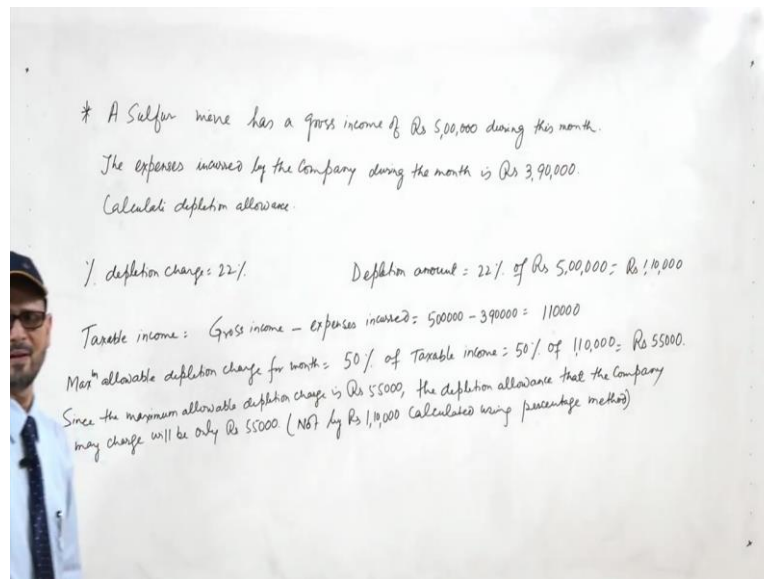 * A Sulfur mine has a gross income of Rs 5,00,000 during this month.
The expenses incurred by the Company during the month is Rs 3,90,000.
Calculate depletion allowance.
% depletion charge = 22%. Depletion amount = 22% of Rs 5,00,000 = Rs 1,10,000
Taxable income = Gross income – expenses incurred = 500000 – 390000 = 110000
Maxm allowable depletion charge for month = 50% of Taxable income = 50% of 1,10,000 = Rs 55000.
Since the maximum allowable depletion charge is Rs 55000, the depletion allowance that the Company
may charge will be only Rs 55000. (Not by Rs 1,10,000 Calculated using percentage method)